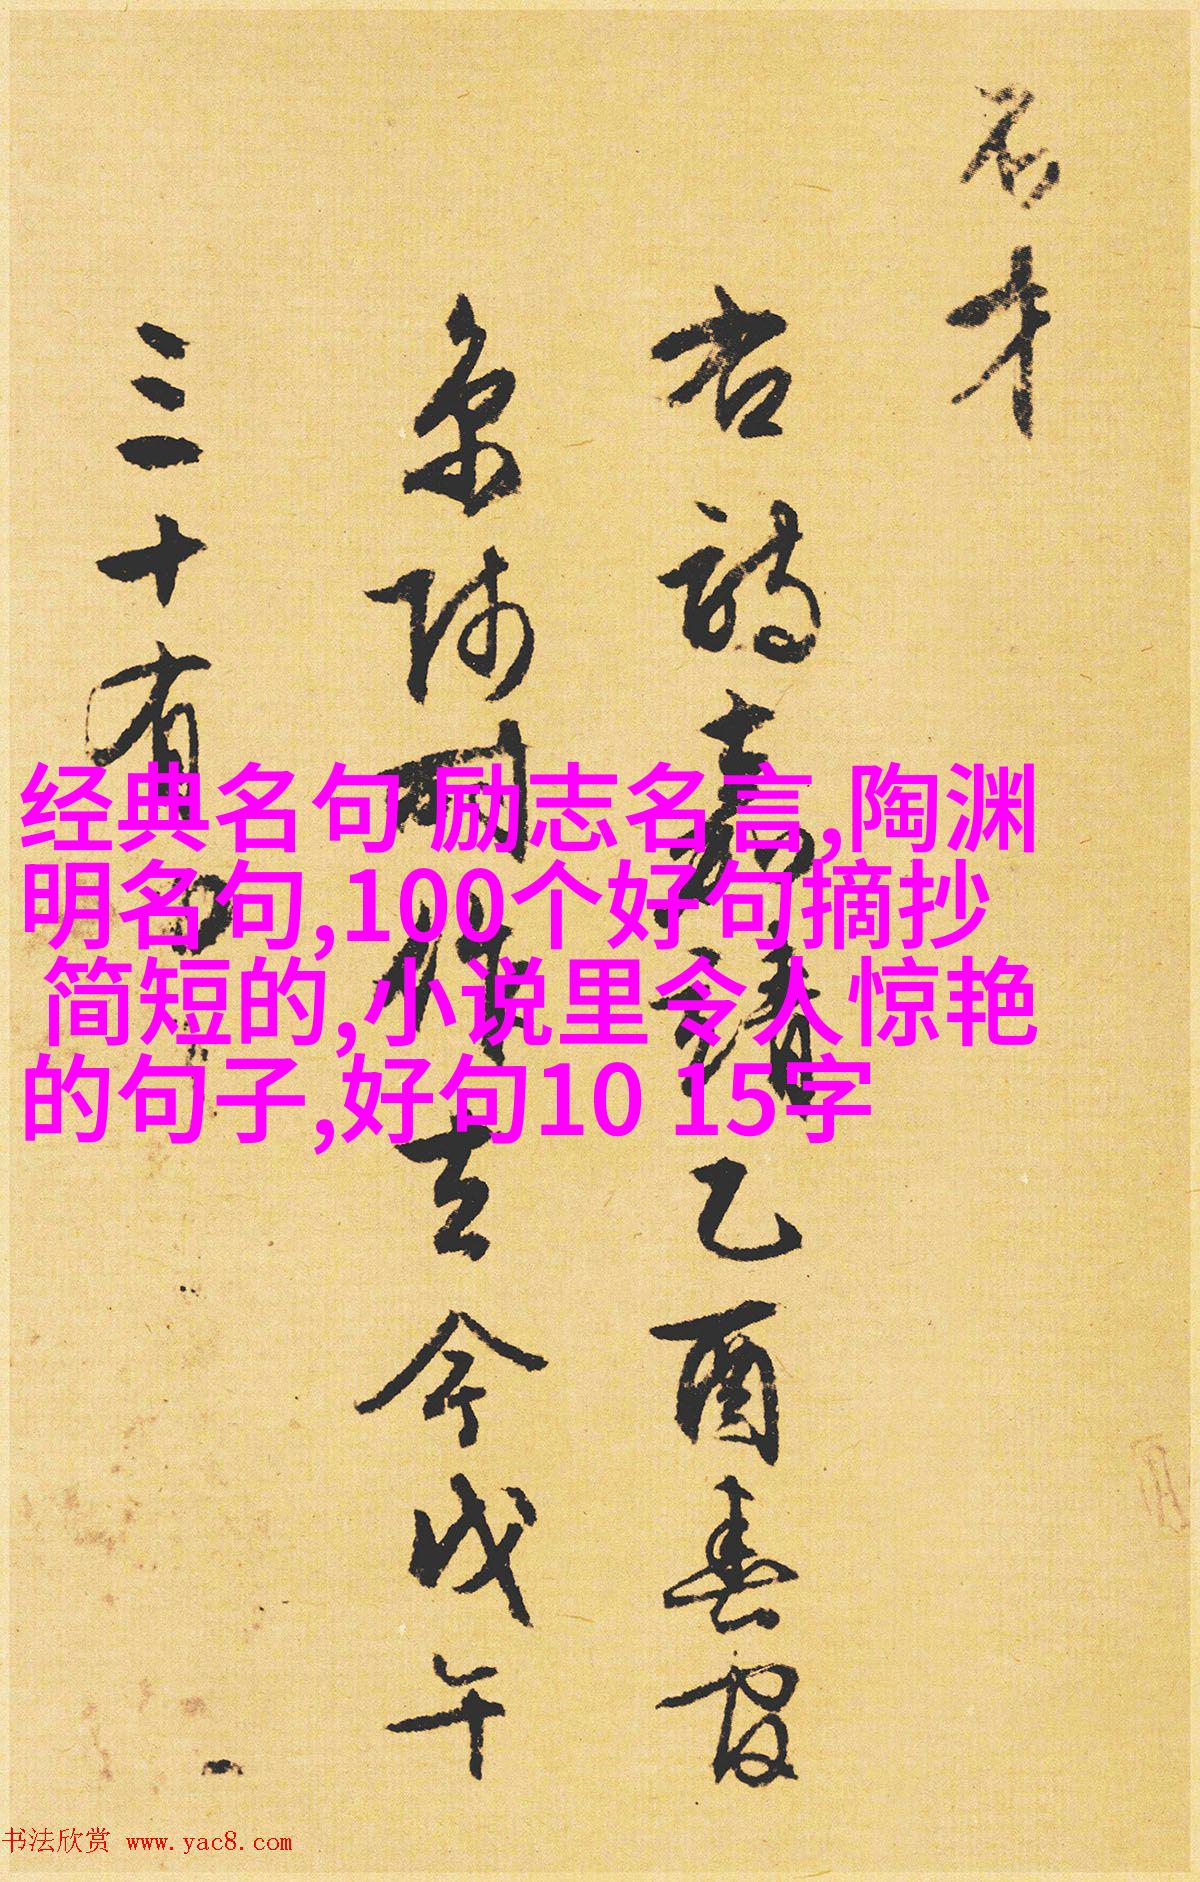 才
右詩嘉靖乙酉春
京師所作去今戊午
三十有
经典名句 励志名言,陶渊
明名句,100个好句摘抄
简短的,小说里令人惊艳
的句子,好句10 15字
书法欣赏 www.yac8.com